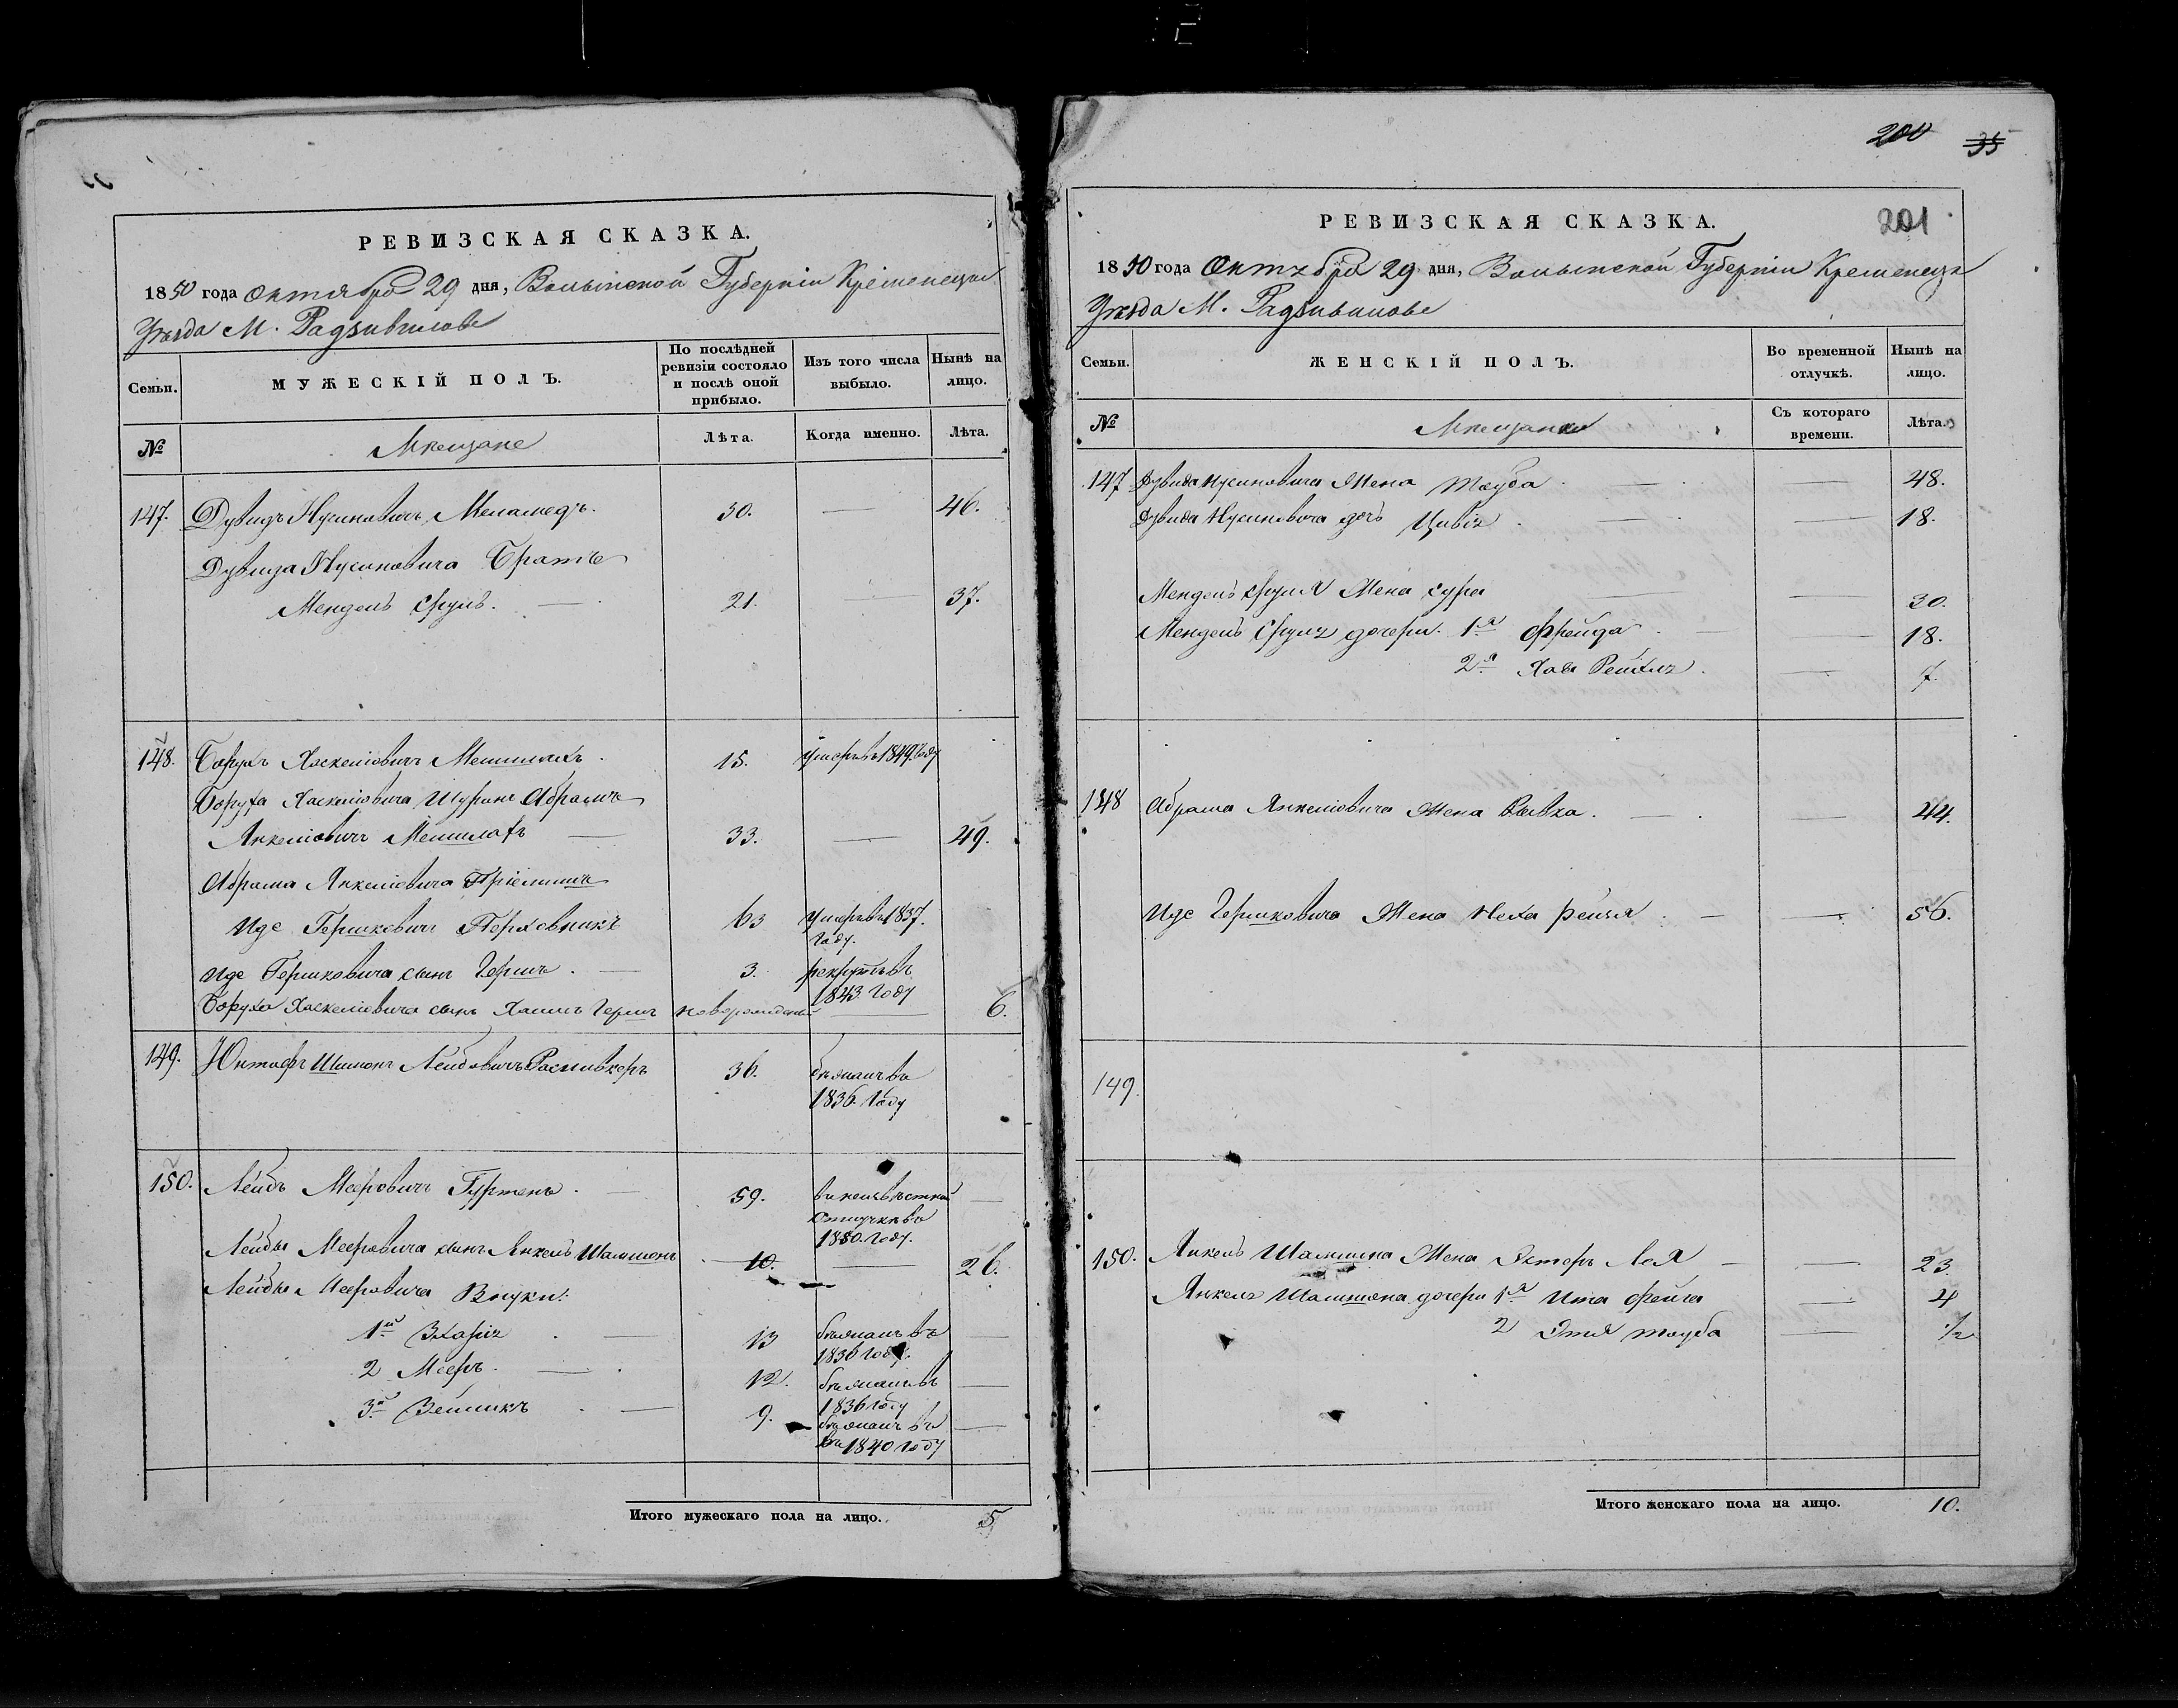 РЕВИЗСКАЯ СКАЗКА.
1850 года Октября 29 дня, Волынской Губерніи Кременецкаго
Уѣзда М. Радзивилове
Семьи.
МУЖЕСКІЙ ПОЛЪ.
По послѣдней ревизіи состояло и послѣ оной прибыло.
Изъ того числа выбыло.
Нынѣ на лицо.
№
Мѣщане
Лѣта.
Когда именно.
Лѣта.
147. Дувидъ Нусиновичъ Меламедъ. 30. — 46.
Дувида Нусиновича Братъ
Мендель Сруль. — 21. — 37.
148. Борухъ Хаскелiовичъ 15. умеръ въ 1849 Году
Боруха Хаскелiовича Шуринъ Абрамъ
Янкелiовичъ — 33. — 49.
Абрама Янкелiовича Пріемышъ
Иде Гершковичъ 63 умеръ въ 1837.
Году.
Иде Гершковича сынъ Гершъ. — 3. рекрутъ въ
1843 Году
Боруха Хаскелiовича сынъ Хаимъ Гершъ новорожденный — 6.
149. Шимонъ Лейбовичъ 36. бѣжалъ въ
1836 Году
150. Лейбъ Мееровичъ Гуртенъ. — 59. въ неизвѣстной —
отлучкѣ въ
1850. Году.
Лейбы Мееровича сынъ Янкель Шлимонъ 10. — 26.
Лейбы Мееровича Внуки:
1й Зхарiя — 13 бѣжалъ въ —
1836 Году.
2 Мееръ. — 12. бѣжалъ въ —
1836 Году
3й Зейликъ — 9. бѣжалъ въ —
въ 1840 Году
Итого мужескаго пола на лицо. 5
200 35
РЕВИЗСКАЯ СКАЗКА. 201
1850 года Октября 29 дня, Волынской Губерніи Кременецкаго
Уѣзда М. Радзивилове
Семьи.
ЖЕНСКІЙ ПОЛЪ.
Во временной отлучкѣ.
Нынѣ на лицо.
№
Мѣщанки
Съ котораго времени.
Лѣта.
147 Дувида Нусиновича Жена Тауба — — 48.
Дувида Нусиновича дочь Цивiя — — 18.
Мендель Сруля Жена Сура — — 30.
Мендель Сруля дочери. 1я Фрейда — — 18.
2я Хая Рейзля. — 7.
148 Абрама Янкелiовича Жена Ривка. — — 44.
Иде Гершковича Жена Неха Рейзя — — 56.
149.
150. Янкель Шлимона Жена Эстеръ Лея — — 23
Янкель Шлимона дочери 1я Ита Фейга — 4
2 Этля Тауба — 1/2
Итого женскаго пола на лицо. 10.